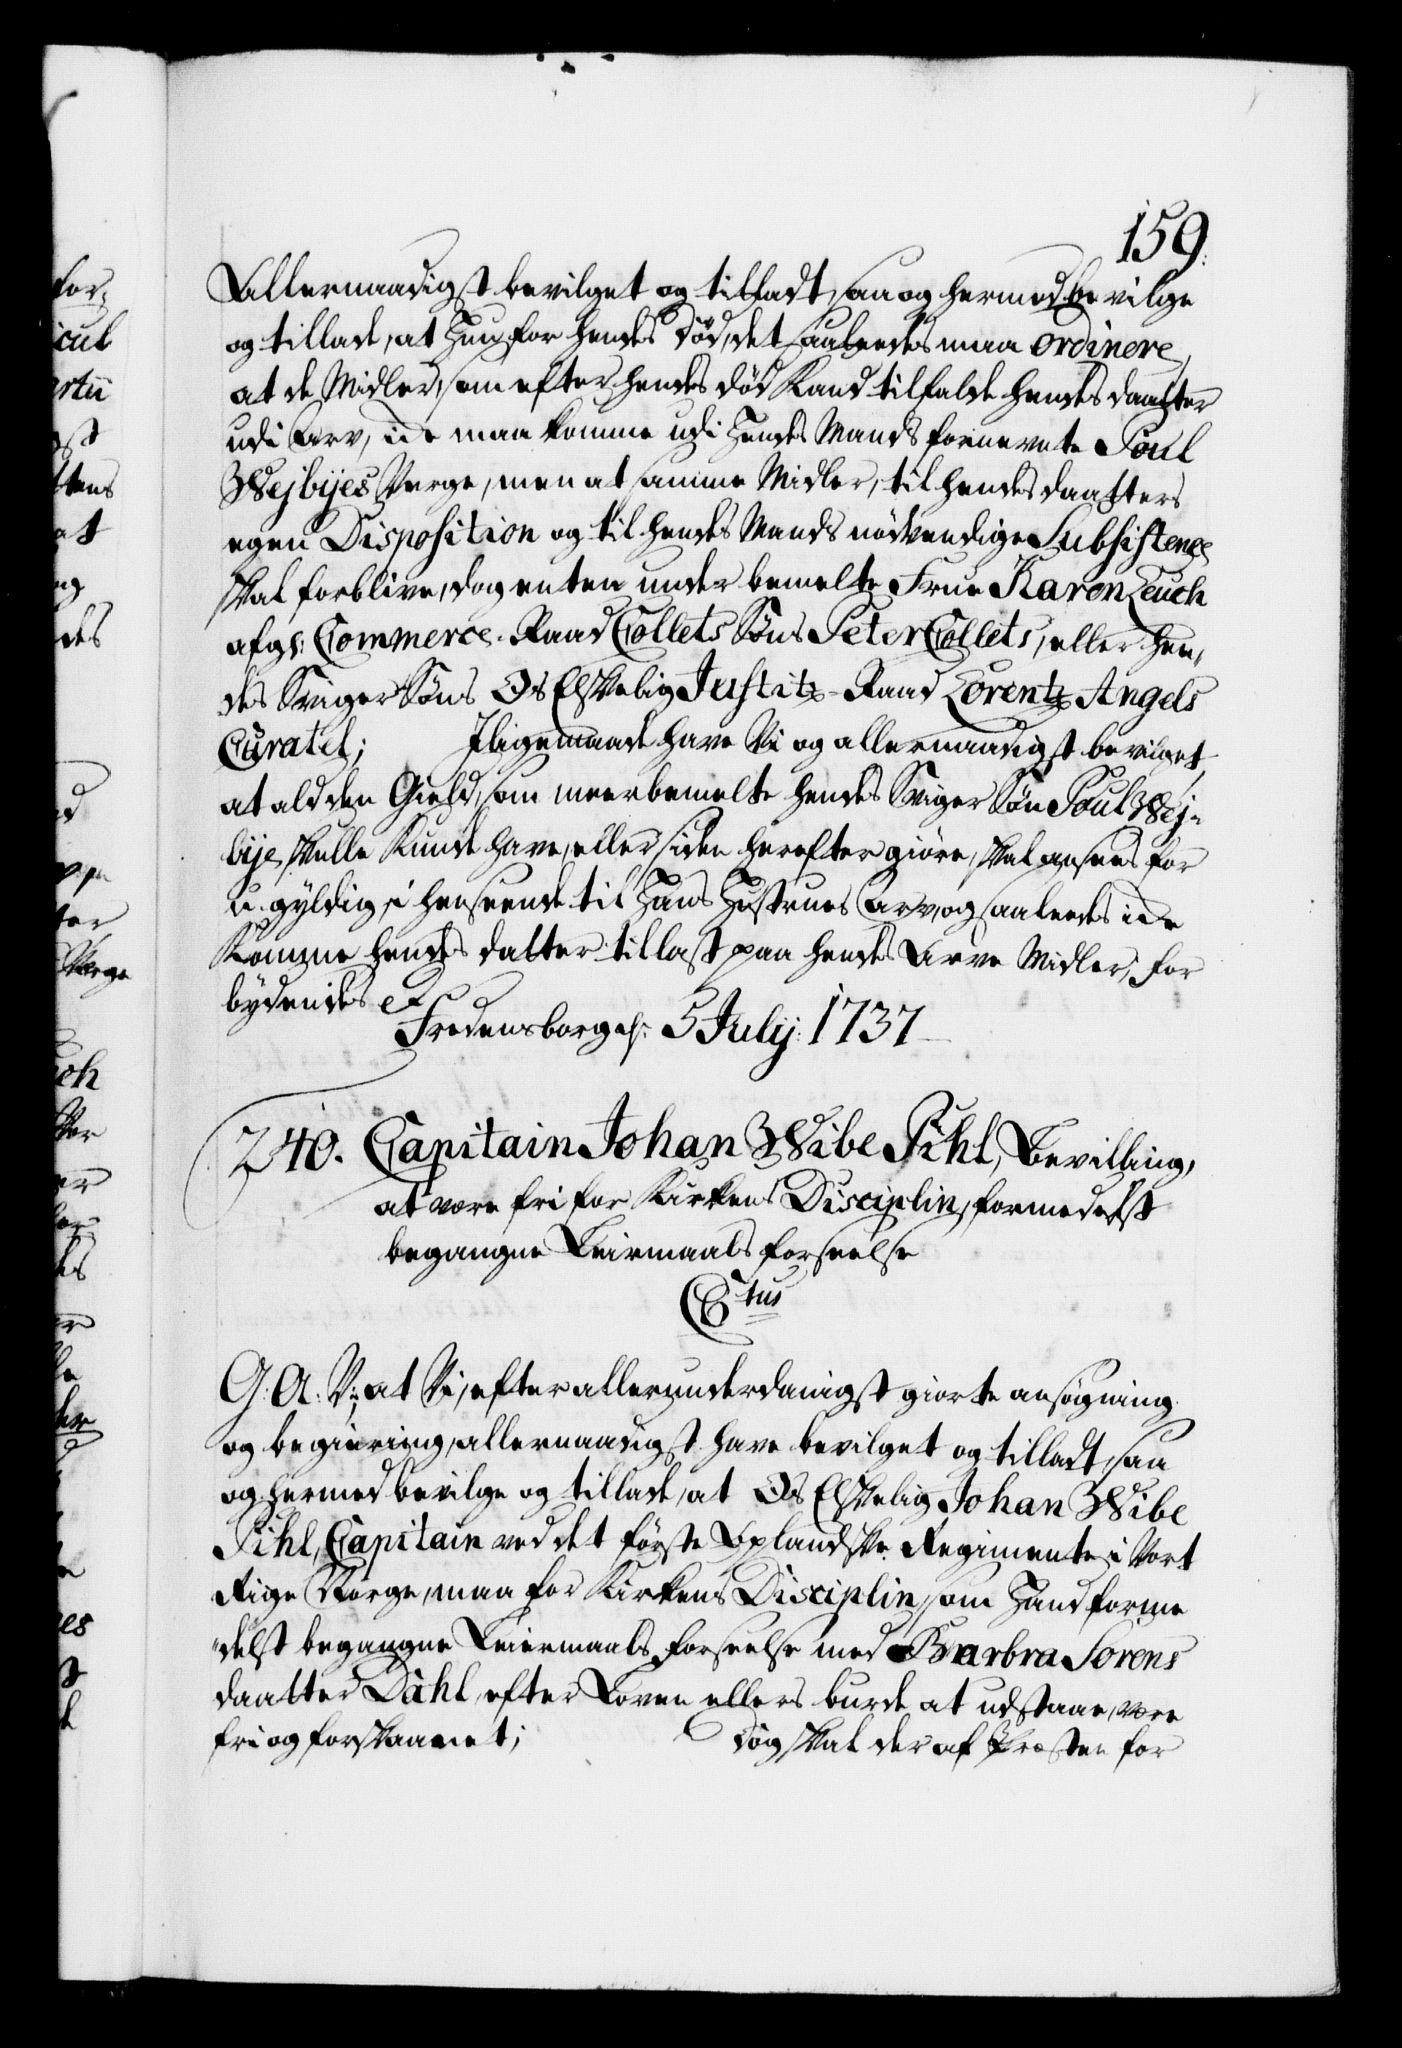 159.
Allernaadigst bevilget og tilladt, saa og hermed bevilge
og tillade, at Hun for hendes død, det saaledes maa ordinere,
at de Midler, som efter hendes død Kand tilfalde hendes daatter
udi Arv, icke maa komme udi Hendes Mands fornevnte Poul
Wejbijes Verge, men at samme Midler, til hendes daatters
egen Disposition og til hendes Mands nødvendige Subsistence
skal forblive, dog enten under bemelte Frue Karen Leuch
afgs: Commerce-Raad Collets Søns Peter Collets, eller hen,
des Sviger Søns Os Elskelig Justitz-Raad Lorentz Angels
Curatel; Iligemaade have Vi og allernaadigst bevilget,
at ald den Gield, som meerbemelte hendes Sviger Søn Poul Wej-
bije, skulle Kunde have, eller siden herefter giøre, skal ansees for
u-gyldig, i henseende til Hans Hustrues Arv, og saaledes icke
Komme hendes datter til last paa hendes Arve Midler, for
bydendes &
Fredensborg &: 5 Julij: 1737
240. Capitain Johan Wibe Pihl, Bevilling,
at være fri for Kirkens Disciplin, formedelst
begangne Leiermaals forseelse
C6tus
G: A: V: at Vi, efter allerunderdanigst giorte ansøgning
og begiering, allernaadigst have bevilget og tilladt, saa
og hermed bevilge og tillade, at Os Elskelig Johan Wibe
Pihl, Capitain ved det første Oplandske Regimente i Vort
Rige Norge, maa for Kirkens Disciplin, som Hand forme
delst begangne Leiermaals forseelse med Barbra Sørens
daatter Dahl, efter Loven ellers burde at udstaae, være
fri og forskaanet; dog skal der af Præsten for